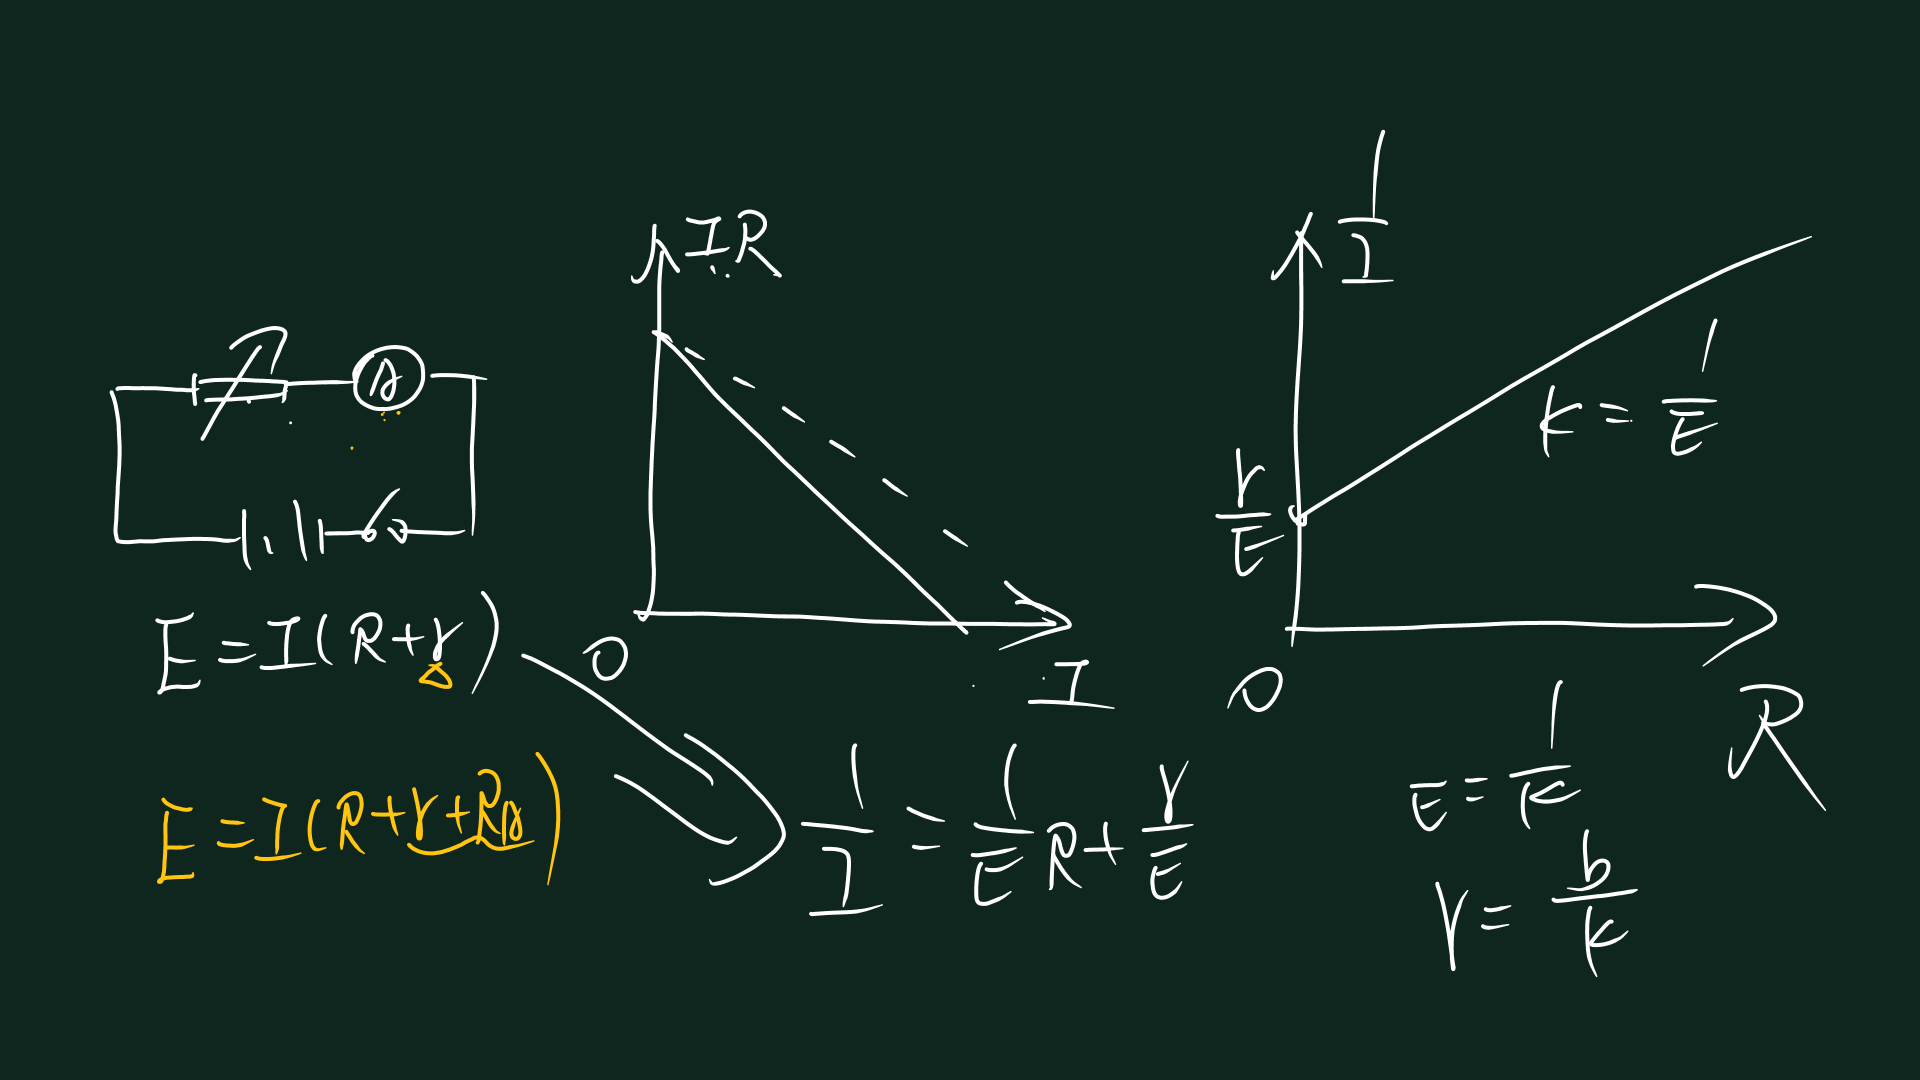 A
E = I(R+r)
E = I(R+r+R_A)
IR
O
I
1/I = 1/E R + r/E
1/I
k = 1/E
r/E
O
R
E = 1/k
r = b/k